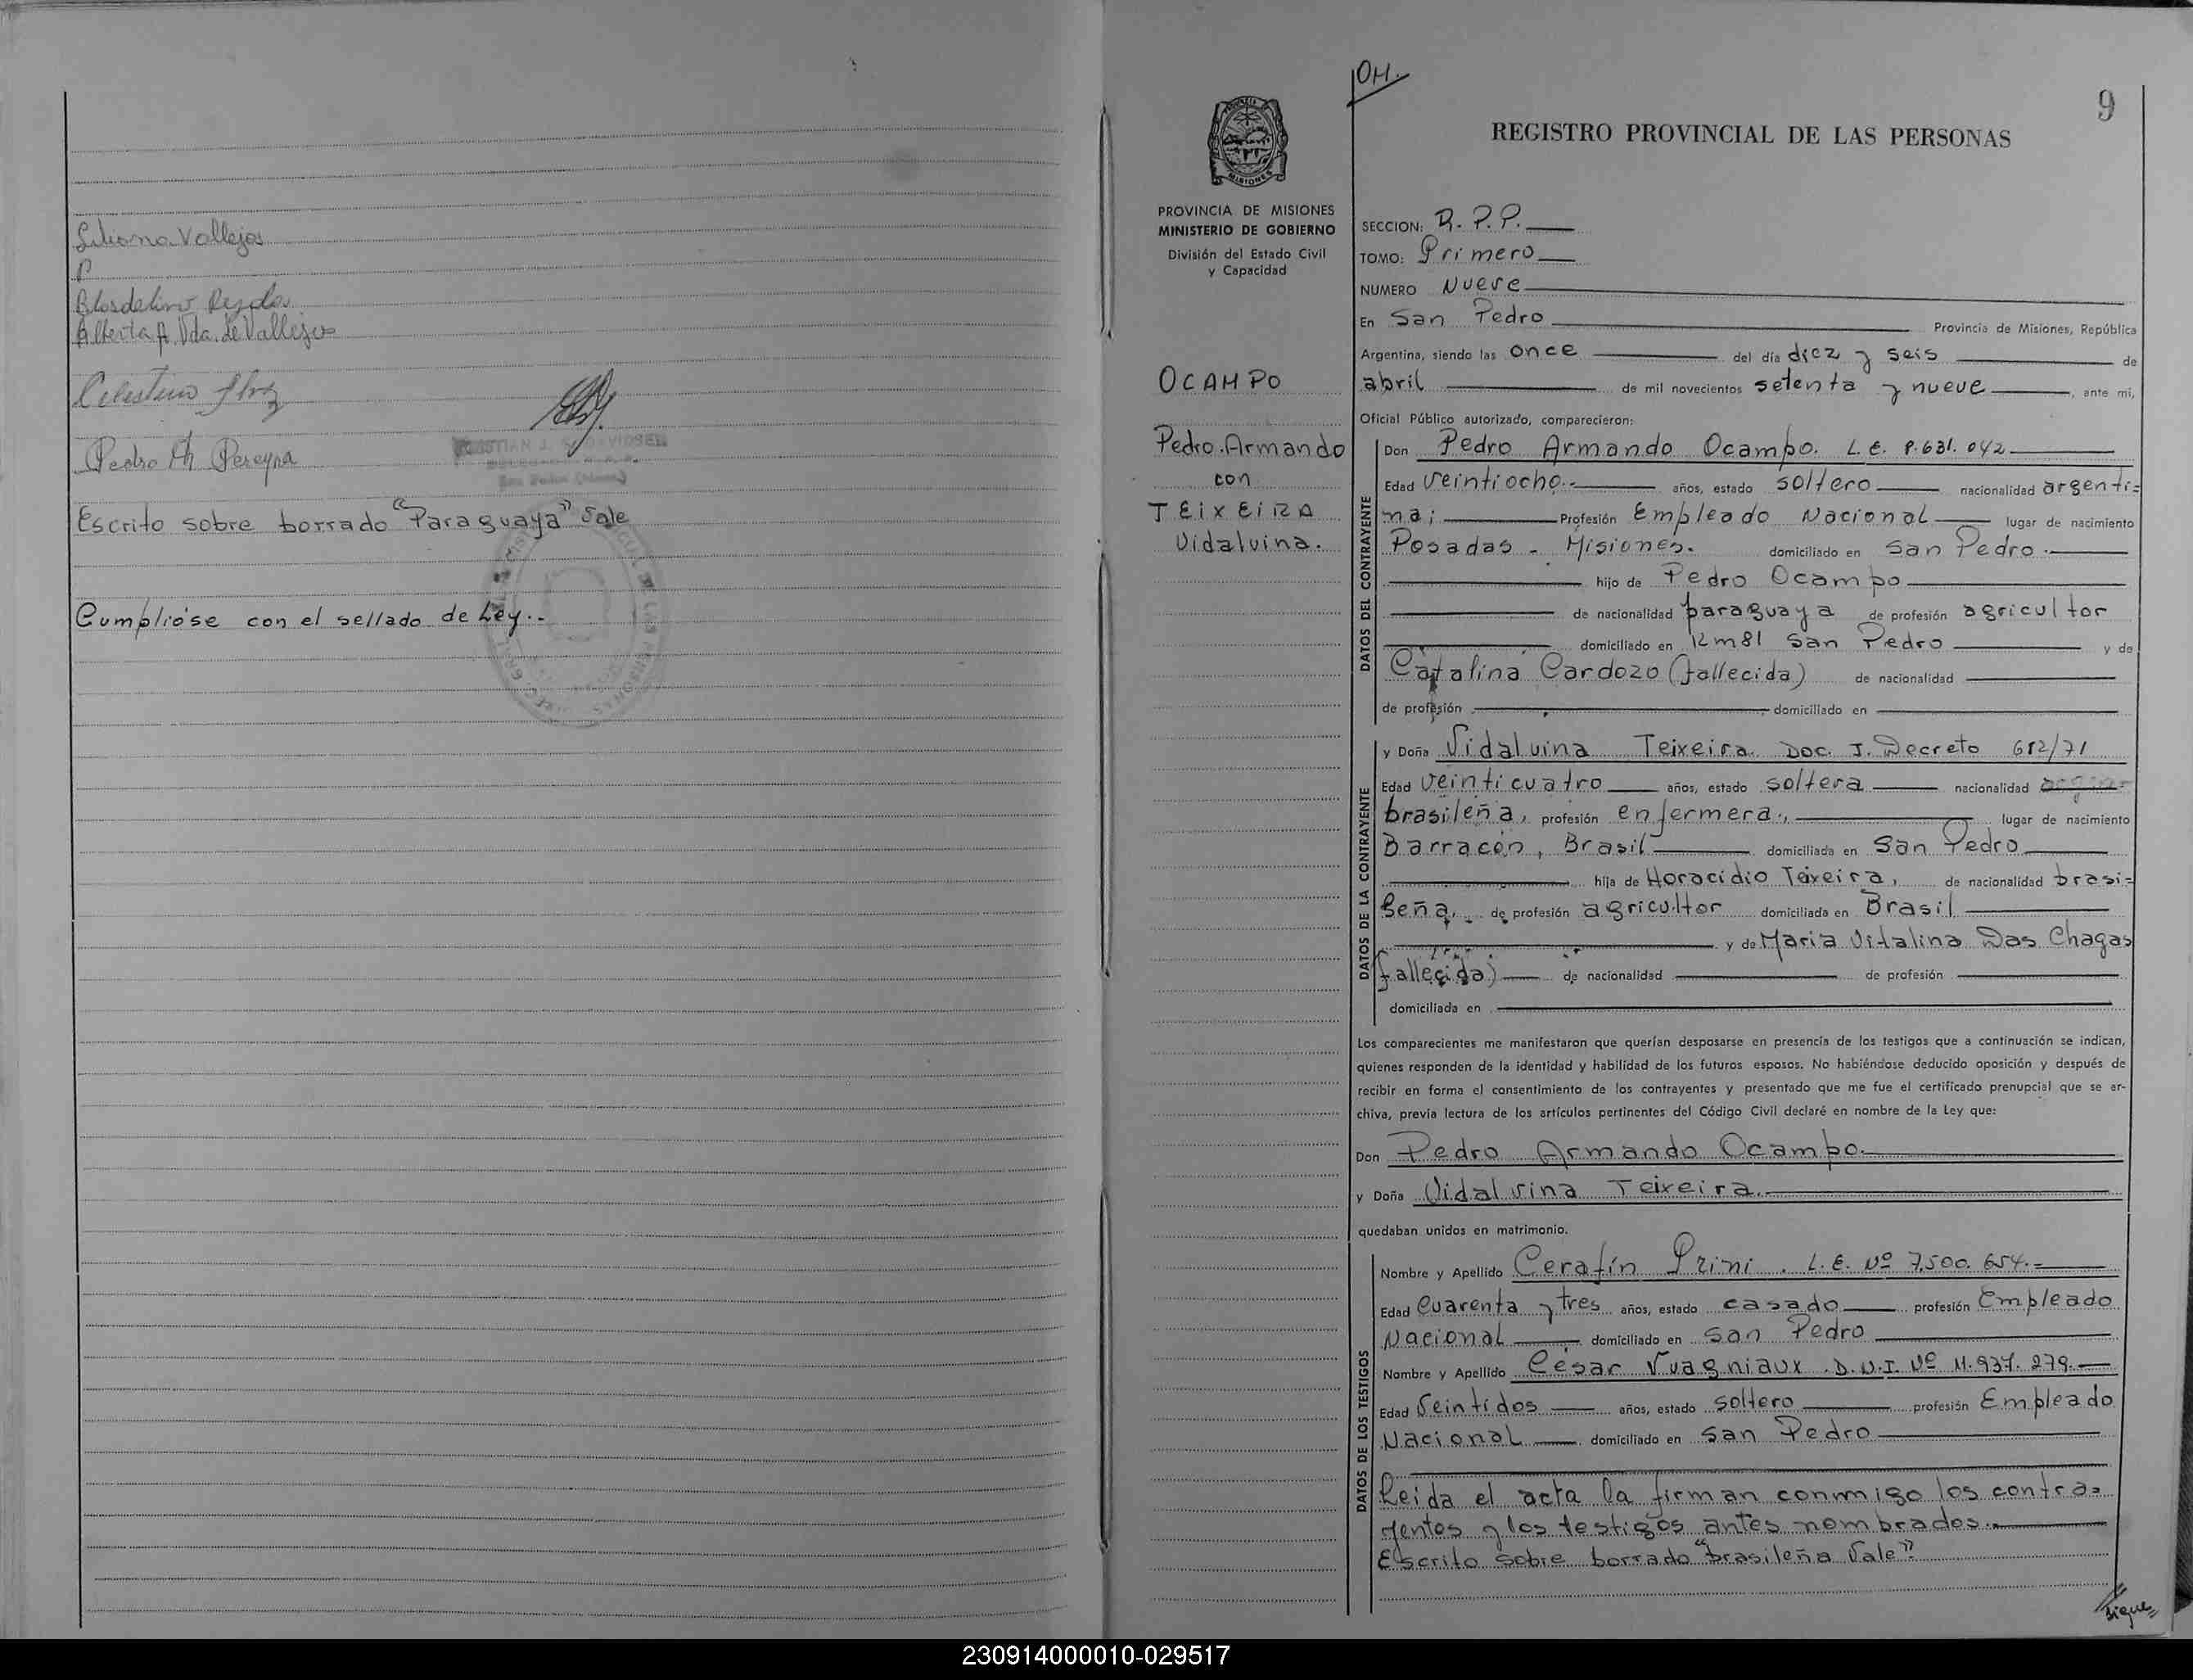 Liliana Vallejos
Alberta A. Vda. de Vallejos
Celestino
Pedro A. Pereyra
San Pedro
Escrito sobre borrado "Paraguaya" Vale
Cumplióse con el sellado de Ley..-
OH.
9
REGISTRO PROVINCIAL DE LAS PERSONAS
MISIONES
PROVINCIA DE MISIONES
MINISTERIO DE GOBIERNO
División del Estado Civil
y Capacidad
OCAMPO
Pedro Armando
con
TEIXEIRA
Vidalvina.
SECCION: R.P.P.
TOMO: Primero
NUMERO Nueve
En San Pedro Provincia de Misiones, República
Argentina, siendo las once del día diez y seis de
abril de mil novecientos setenta y nueve, ante mi,
Oficial Público autorizado, comparecieron:
DATOS DEL CONTRAYENTE
Don Pedro Armando Ocampo. L.E. 8.631.042
Edad veintiocho.- años, estado soltero nacionalidad argenti=
na; Profesión Empleado Nacional lugar de nacimiento
Posadas - Misiones. domiciliado en San Pedro.
hijo de Pedro Ocampo
de nacionalidad paraguaya de profesión agricultor
domiciliado en Km 81 San Pedro y de
Catalina Cardozo (fallecida) de nacionalidad
de profesión domiciliado en
DATOS DE LA CONTRAYENTE
y Doña Vidalvina Teixeira Doc. I. Decreto 612/71
Edad veinticuatro años, estado soltera nacionalidad
brasileña, profesión enfermera., lugar de nacimiento
Barracón, Brasil domiciliada en San Pedro
hija de Horacidio Teixeira, de nacionalidad brasi=
leña, de profesión agricultor domiciliada en Brasil
y de Maria Vitalina Das Chagas
fallecida) de nacionalidad de profesión
domiciliada en
Los comparecientes me manifestaron que querían desposarse en presencia de los testigos que a continuación se indican,
quienes responden de la identidad y habilidad de los futuros esposos. No habiéndose deducido oposición y después de
recibir en forma el consentimiento de los contrayentes y presentado que me fue el certificado prenupcial que se ar-
chiva, previa lectura de los artículos pertinentes del Código Civil declaré en nombre de la Ley que:
Don Pedro Armando Ocampo.
y Doña Vidalvina Teixeira.
quedaban unidos en matrimonio.
DATOS DE LOS TESTIGOS
Nombre y Apellido Cerafín Prini. L.E. Nº 7.500.654.-
Edad Cuarenta y tres años, estado casado profesión Empleado
Nacional domiciliado en San Pedro
Nombre y Apellido César Vuagniaux. D.N.I. Nº 11.937.279.
Edad Veintidos años, estado soltero profesión Empleado
Nacional domiciliado en San Pedro
Leida el acta la firman conmigo los contra=
yentes y los testigos antes nombrados..
Escrito sobre borrado "brasileña Vale".
sigue
230914000010-029517